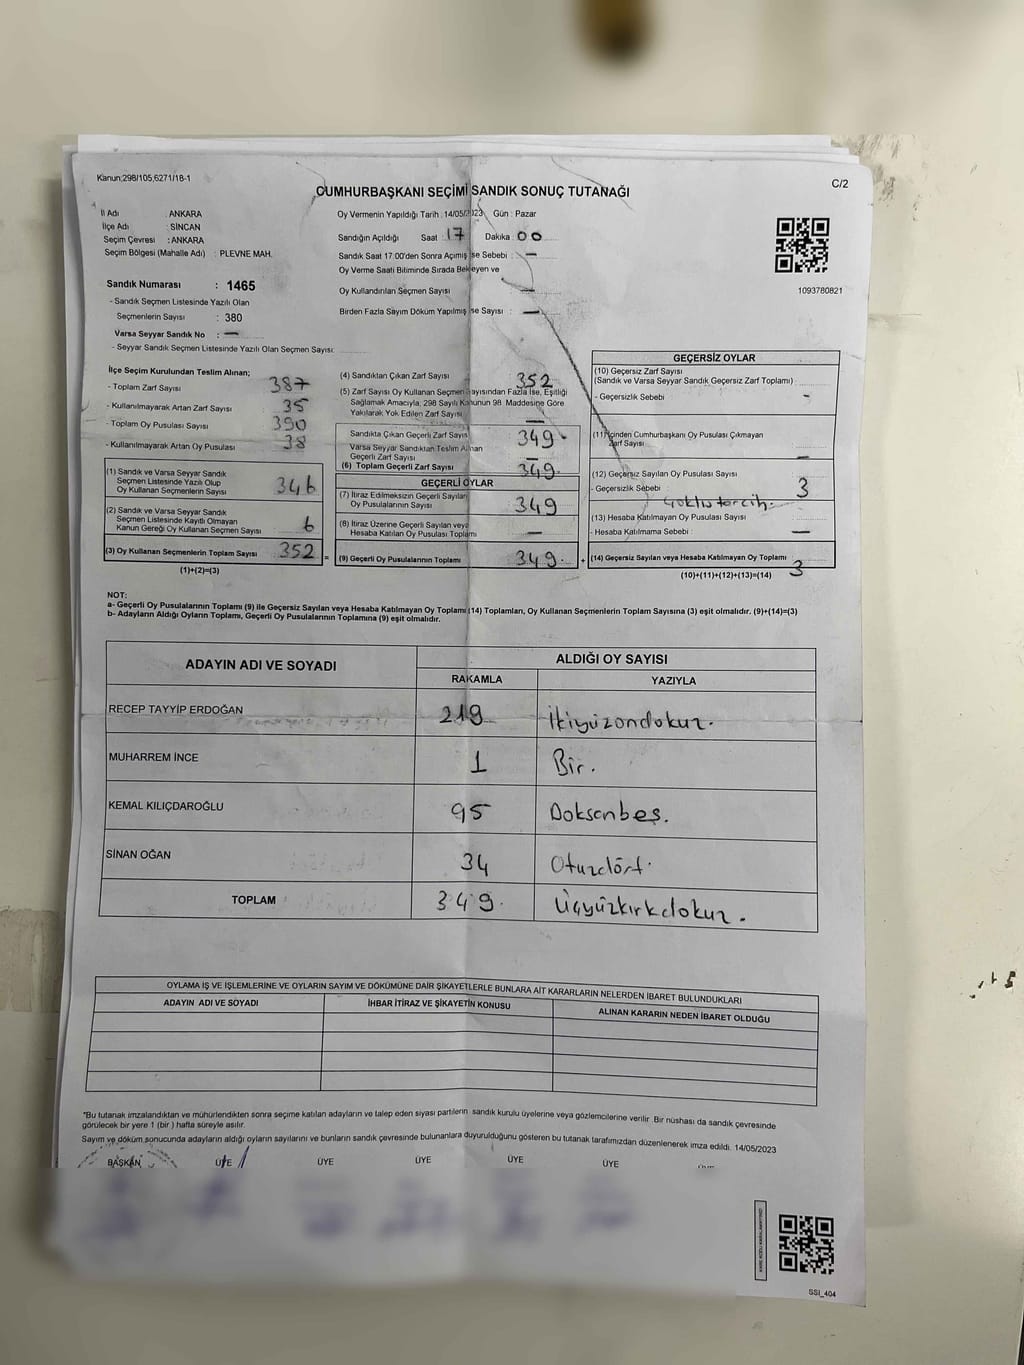 Kanun;298/105,6271/18-1
C/2
CUMHURBAŞKANI SEÇİMİ SANDIK SONUÇ TUTANAĞI
İl Adı : ANKARA
İlçe Adı : SİNCAN
Seçim Çevresi : ANKARA
Seçim Bölgesi (Mahalle Adı) : PLEVNE MAH.
Oy Vermenin Yapıldığı Tarih : 14/05/2023 Gün : Pazar
Sandığın Açıldığı Saat : 17 Dakika : 00
Sandık Saat 17:00'den Sonra Açımış ise Sebebi : —
Oy Verme Saati Bitiminde Sırada Bekleyen ve
Oy Kullandırılan Seçmen Sayısı —
Birden Fazla Sayım Döküm Yapılmış ise Sayısı : —
1093780821
Sandık Numarası : 1465
- Sandık Seçmen Listesinde Yazılı Olan
Seçmenlerin Sayısı : 380
Varsa Seyyar Sandık No : —
- Seyyar Sandık Seçmen Listesinde Yazılı Olan Seçmen Sayısı:
İlçe Seçim Kurulundan Teslim Alınan;
- Toplam Zarf Sayısı 387
- Kullanılmayarak Artan Zarf Sayısı 35
- Toplam Oy Pusulası Sayısı 390
- Kullanılmayarak Artan Oy Pusulası 38
(1) Sandık ve Varsa Seyyar Sandık
Seçmen Listesinde Yazılı Olup
Oy Kullanan Seçmenlerin Sayısı 346
(2) Sandık ve Varsa Seyyar Sandık
Seçmen Listesinde Kayıtlı Olmayan
Kanun Gereği Oy Kullanan Seçmen Sayısı 6
(3) Oy Kullanan Seçmenlerin Toplam Sayısı 352
(1)+(2)=(3)
(4) Sandıktan Çıkan Zarf Sayısı 352
(5) Zarf Sayısı Oy Kullanan Seçmen Sayısından Fazla İse, Eşitliği
Sağlamak Amacıyla, 298 Sayılı Kanunun 98. Maddesine Göre
Yakılarak Yok Edilen Zarf Sayısı —
Sandıkta Çıkan Geçerli Zarf Sayısı 349
Varsa Seyyar Sandıktan Teslim Alınan
Geçerli Zarf Sayısı —
(6) Toplam Geçerli Zarf Sayısı 349
GEÇERLİ OYLAR
(7) İtiraz Edilmeksizin Geçerli Sayılan
Oy Pusulalarının Sayısı 349
(8) İtiraz Üzerine Geçerli Sayılan veya
Hesaba Katılan Oy Pusulası Toplamı —
= (9) Geçerli Oy Pusulalarının Toplamı 349
GEÇERSİZ OYLAR
(10) Geçersiz Zarf Sayısı
(Sandık ve Varsa Seyyar Sandık Geçersiz Zarf Toplamı)
- Geçersizlik Sebebi -
(11) İçinden Cumhurbaşkanı Oy Pusulası Çıkmayan
Zarf Sayısı —
(12) Geçersiz Sayılan Oy Pusulası Sayısı 3
- Geçersizlik Sebebi : Çoklu tercih.
(13) Hesaba Katılmayan Oy Pusulası Sayısı
- Hesaba Katılmama Sebebi : —
+ (14) Geçersiz Sayılan veya Hesaba Katılmayan Oy Toplamı 3
(10)+(11)+(12)+(13)=(14)
NOT:
a- Geçerli Oy Pusulalarının Toplamı (9) ile Geçersiz Sayılan veya Hesaba Katılmayan Oy Toplamı (14) Toplamları, Oy Kullanan Seçmenlerin Toplam Sayısına (3) eşit olmalıdır. (9)+(14)=(3)
b- Adayların Aldığı Oyların Toplamı, Geçerli Oy Pusulalarının Toplamına (9) eşit olmalıdır.
ADAYIN ADI VE SOYADI ALDIĞI OY SAYISI
RAKAMLA YAZIYLA
RECEP TAYYİP ERDOĞAN 219 İkiyüzondokuz.
MUHARREM İNCE 1 Bir.
KEMAL KILIÇDAROĞLU 95 Doksanbeş.
SİNAN OĞAN 34 Otuzdört.
TOPLAM 349. Üçyüzkırkdokuz.
OYLAMA İŞ VE İŞLEMLERİNE VE OYLARIN SAYIM VE DÖKÜMÜNE DAİR ŞİKAYETLERLE BUNLARA AİT KARARLARIN NELERDEN İBARET BULUNDUKLARI
ADAYIN ADI VE SOYADI İHBAR İTİRAZ VE ŞİKAYETİN KONUSU ALINAN KARARIN NEDEN İBARET OLDUĞU
*Bu tutanak imzalandıktan ve mühürlendikten sonra seçime katılan adayların ve talep eden siyasi partilerin sandık kurulu üyelerine veya gözlemcilerine verilir. Bir nüshası da sandık çevresinde
görülecek bir yere 1 (bir ) hafta süreyle asılır.
Sayım ve döküm sonucunda adayların aldığı oyların sayılarını ve bunların sandık çevresinde bulunanlara duyurulduğunu gösteren bu tutanak tarafımızdan düzenlenerek imza edildi. 14/05/2023
BAŞKAN ÜYE ÜYE ÜYE ÜYE ÜYE
SSİ_404